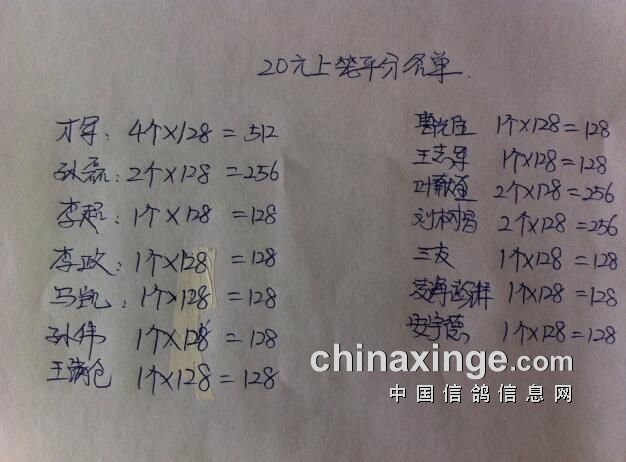 20元上笼平分名单
才军: 4个×128=512
孙磊: 2个×128=256
李超: 1个×128=128
李政: 1个×128=128
马凯: 1个×128=128
孙伟 1个×128=128
王满仓 1个×128=128
1个×128=128
王志军 1个×128=128
叶 2个×128=256
刘树 2个×128=256
三友 1个×128=128
1个×128=128
安宇德 1个×128=128
chinaxinge.com
中国信鸽信息网